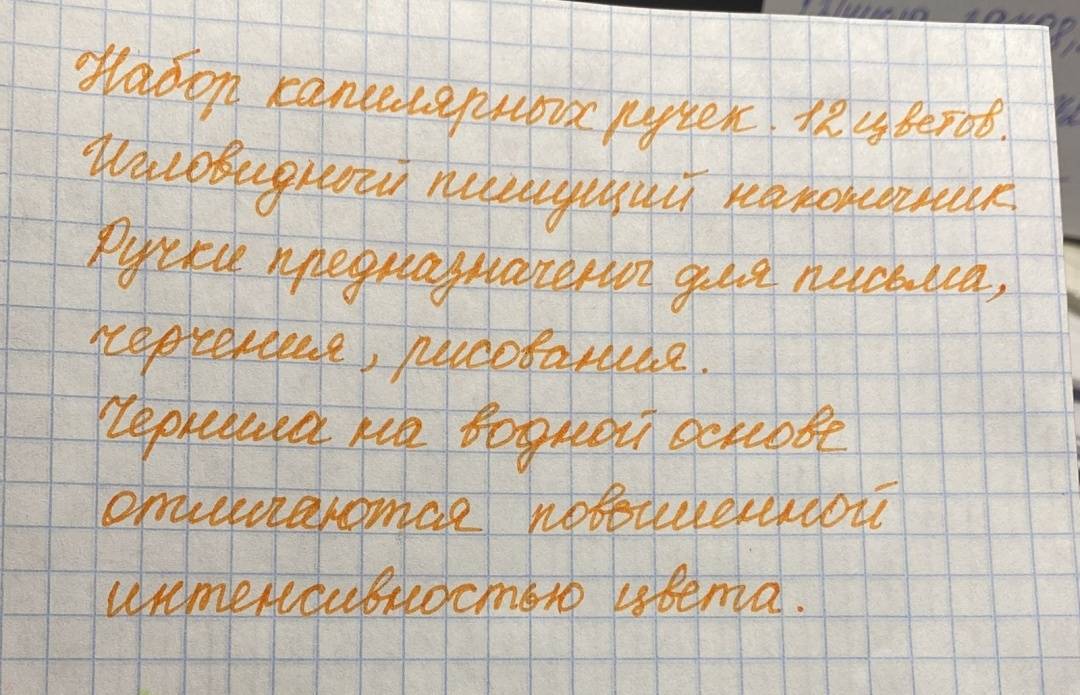 Набор капилярных ручек. 12 цветов.
Игловидный пишущий наконечник.
Ручки предназначены для письма,
черчения, рисования.
Чернила на водной основе
отличаются повышенной
интенсивностью цвета.